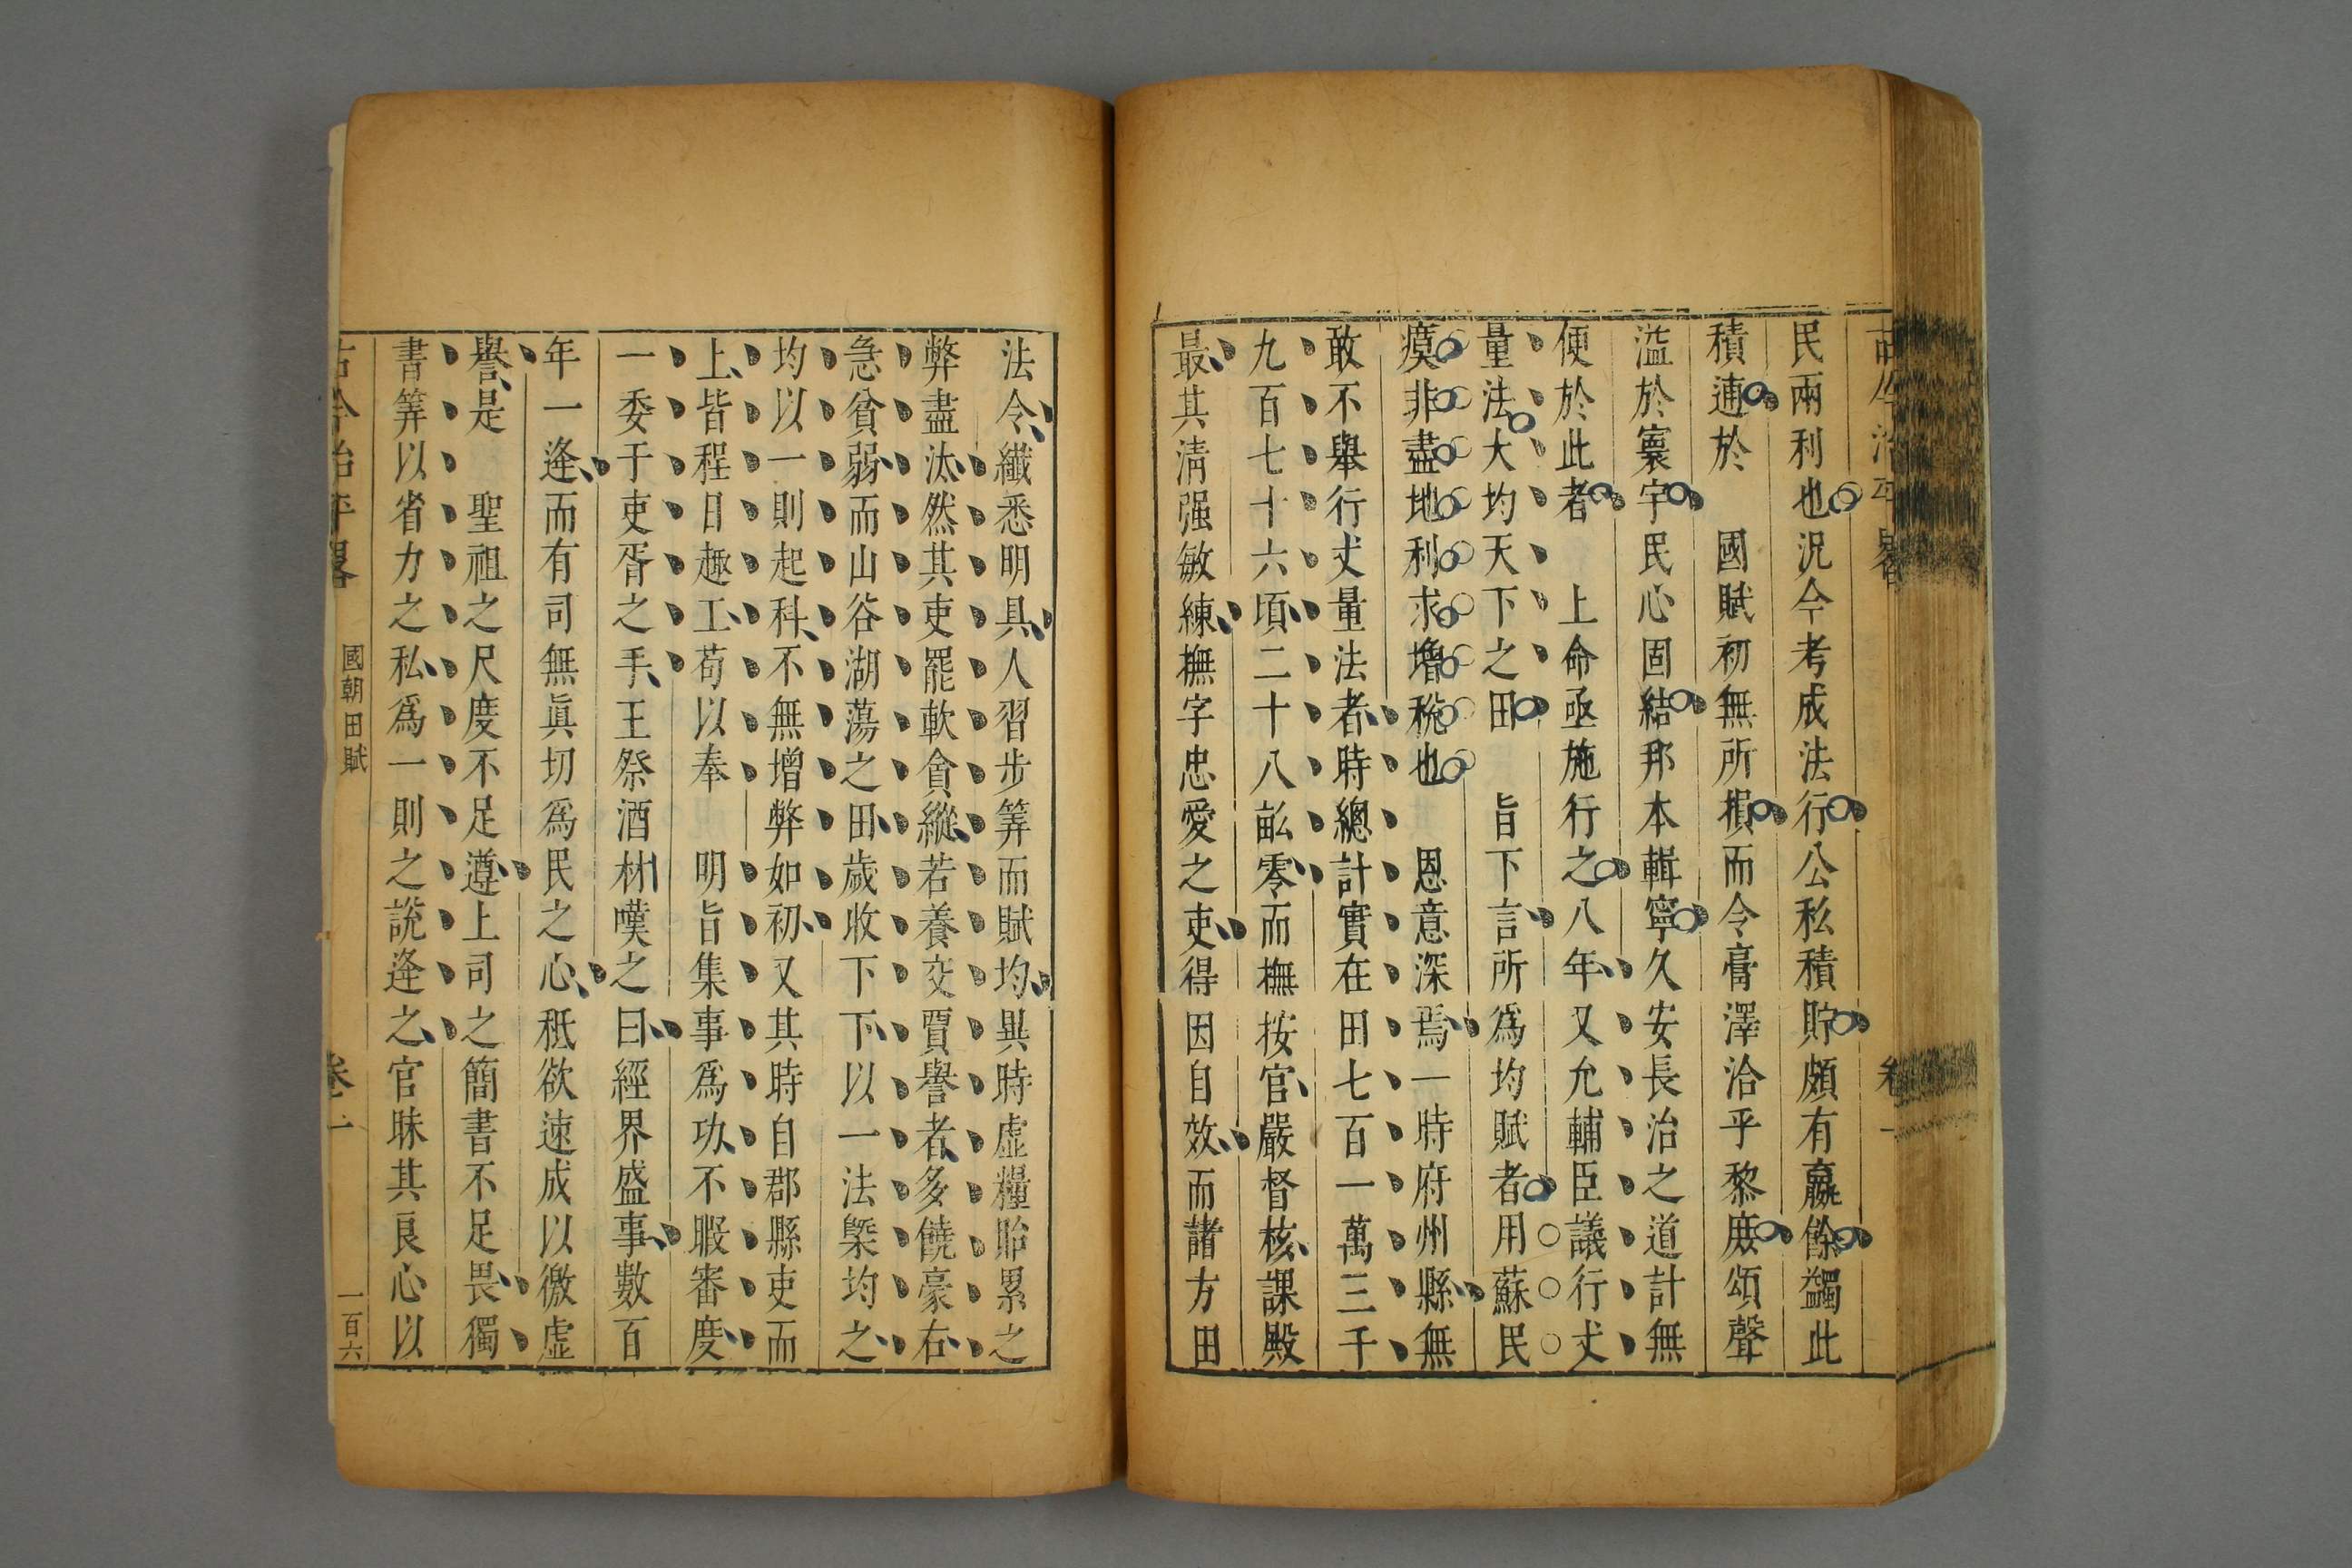 古今治平畧 卷一
民兩利也況今考成法行公私積貯頗有羸餘蠲此
積逋於 國賦初無所損而令膏澤洽乎黎庻頌聲
溢於寰宇民心固結邦本輯寧久安長治之道計無
便於此者 上命亟施行之八年又允輔臣議行丈
量法大均天下之田 旨下言所爲均賦者用蘇民
瘼非盡地利求增稅也 恩意深焉一時府州縣無
敢不舉行丈量法者時總計實在田七百一萬三千
九百七十六頃二十八畝零而撫按官嚴督核課殿
最其清强敏練撫字忠愛之吏得因自效而諸方田
法令纖悉明具人習步筭而賦均異時虛糧貽累之
弊盡汰然其吏罷軟貪縱若養交賈譽者多饒豪右
急貧弱而山谷湖蕩之田歲收下下以一法槩均之
均以一則起科不無增弊如初又其時自郡縣吏而
上皆程日趣工苟以奉 明旨集事爲功不暇審度
一委于吏胥之手王祭酒材嘆之曰經界盛事數百
年一逢而有司無眞切爲民之心秖欲速成以徼虛
譽是 聖祖之尺度不足遵上司之簡書不足畏獨
書筭以省力之私爲一則之說逢之官昧其良心以
古今治平畧 國朝田賦 卷一 一百六